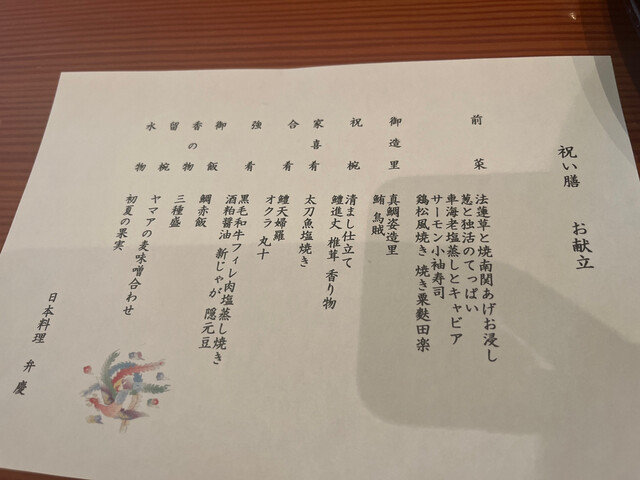 祝い膳 お献立
前菜
法蓮草と焼南関あげお浸し
葱と独活のてっぱい
車海老塩蒸しとキャビア
サーモン小袖寿司
鶏松風焼き 焼き栗麩田楽
御造里
真鯛姿造里
鮪 烏賊
祝椀
清まし仕立て
鱧進丈 椎茸 香り物
家喜肴
太刀魚塩焼き
合肴
鱧天婦羅
オクラ 丸十
強肴
黒毛和牛フィレ肉塩蒸し焼き
酒粕醤油 新じゃが 隠元豆
御飯
鯛赤飯
香の物
三種盛
留椀
ヤマアの麦味噌合わせ
水物
初夏の果実
日本料理 弁慶